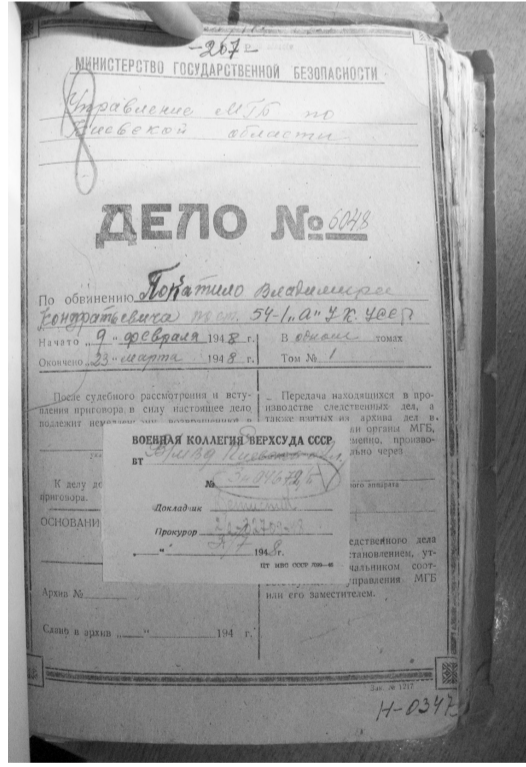 -267-
МИНИСТЕРСТВО ГОСУДАРСТВЕННОЙ БЕЗОПАСНОСТИ
Управление МГБ по
Киевской области
ДЕЛО № 6048
По обвинению Покатило Владимира
Кондратьевича по ст. 54-1 „А" УК УССР
Начато „9" февраля 1948 г.
Окончено „23" марта 1948 г.
В одном томах
Том № 1
После судебного рассмотрения и всту-
пления приговора в силу настоящее дело
подлежит
К делу
приговора.
ОСНОВАНИ
Архив №
Сдано в архив „ " 194 г.
Передача находящихся в про-
изводстве следственных дел, а
также взятых из архива дел в
органы МГБ,
произво-
через
аппарата
едственного дела
становлением, ут-
чальником соот-
управления МГБ
или его заместителем.
ВОЕННАЯ КОЛЛЕГИЯ ВЕРХСУДА СССР
ВТ
№
Докладчик
Прокурор
1948 г.
Зак. № 1217
Н-0347